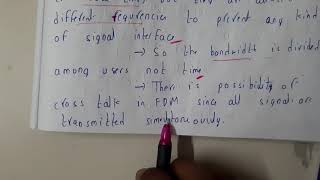 different frequrencie to prevent any kind
of signal interface
→ So the bandwidth is divided
among users not time
→ Ther is possibility of
cross talk in FDM since all signal are
transmitted simultaneously.